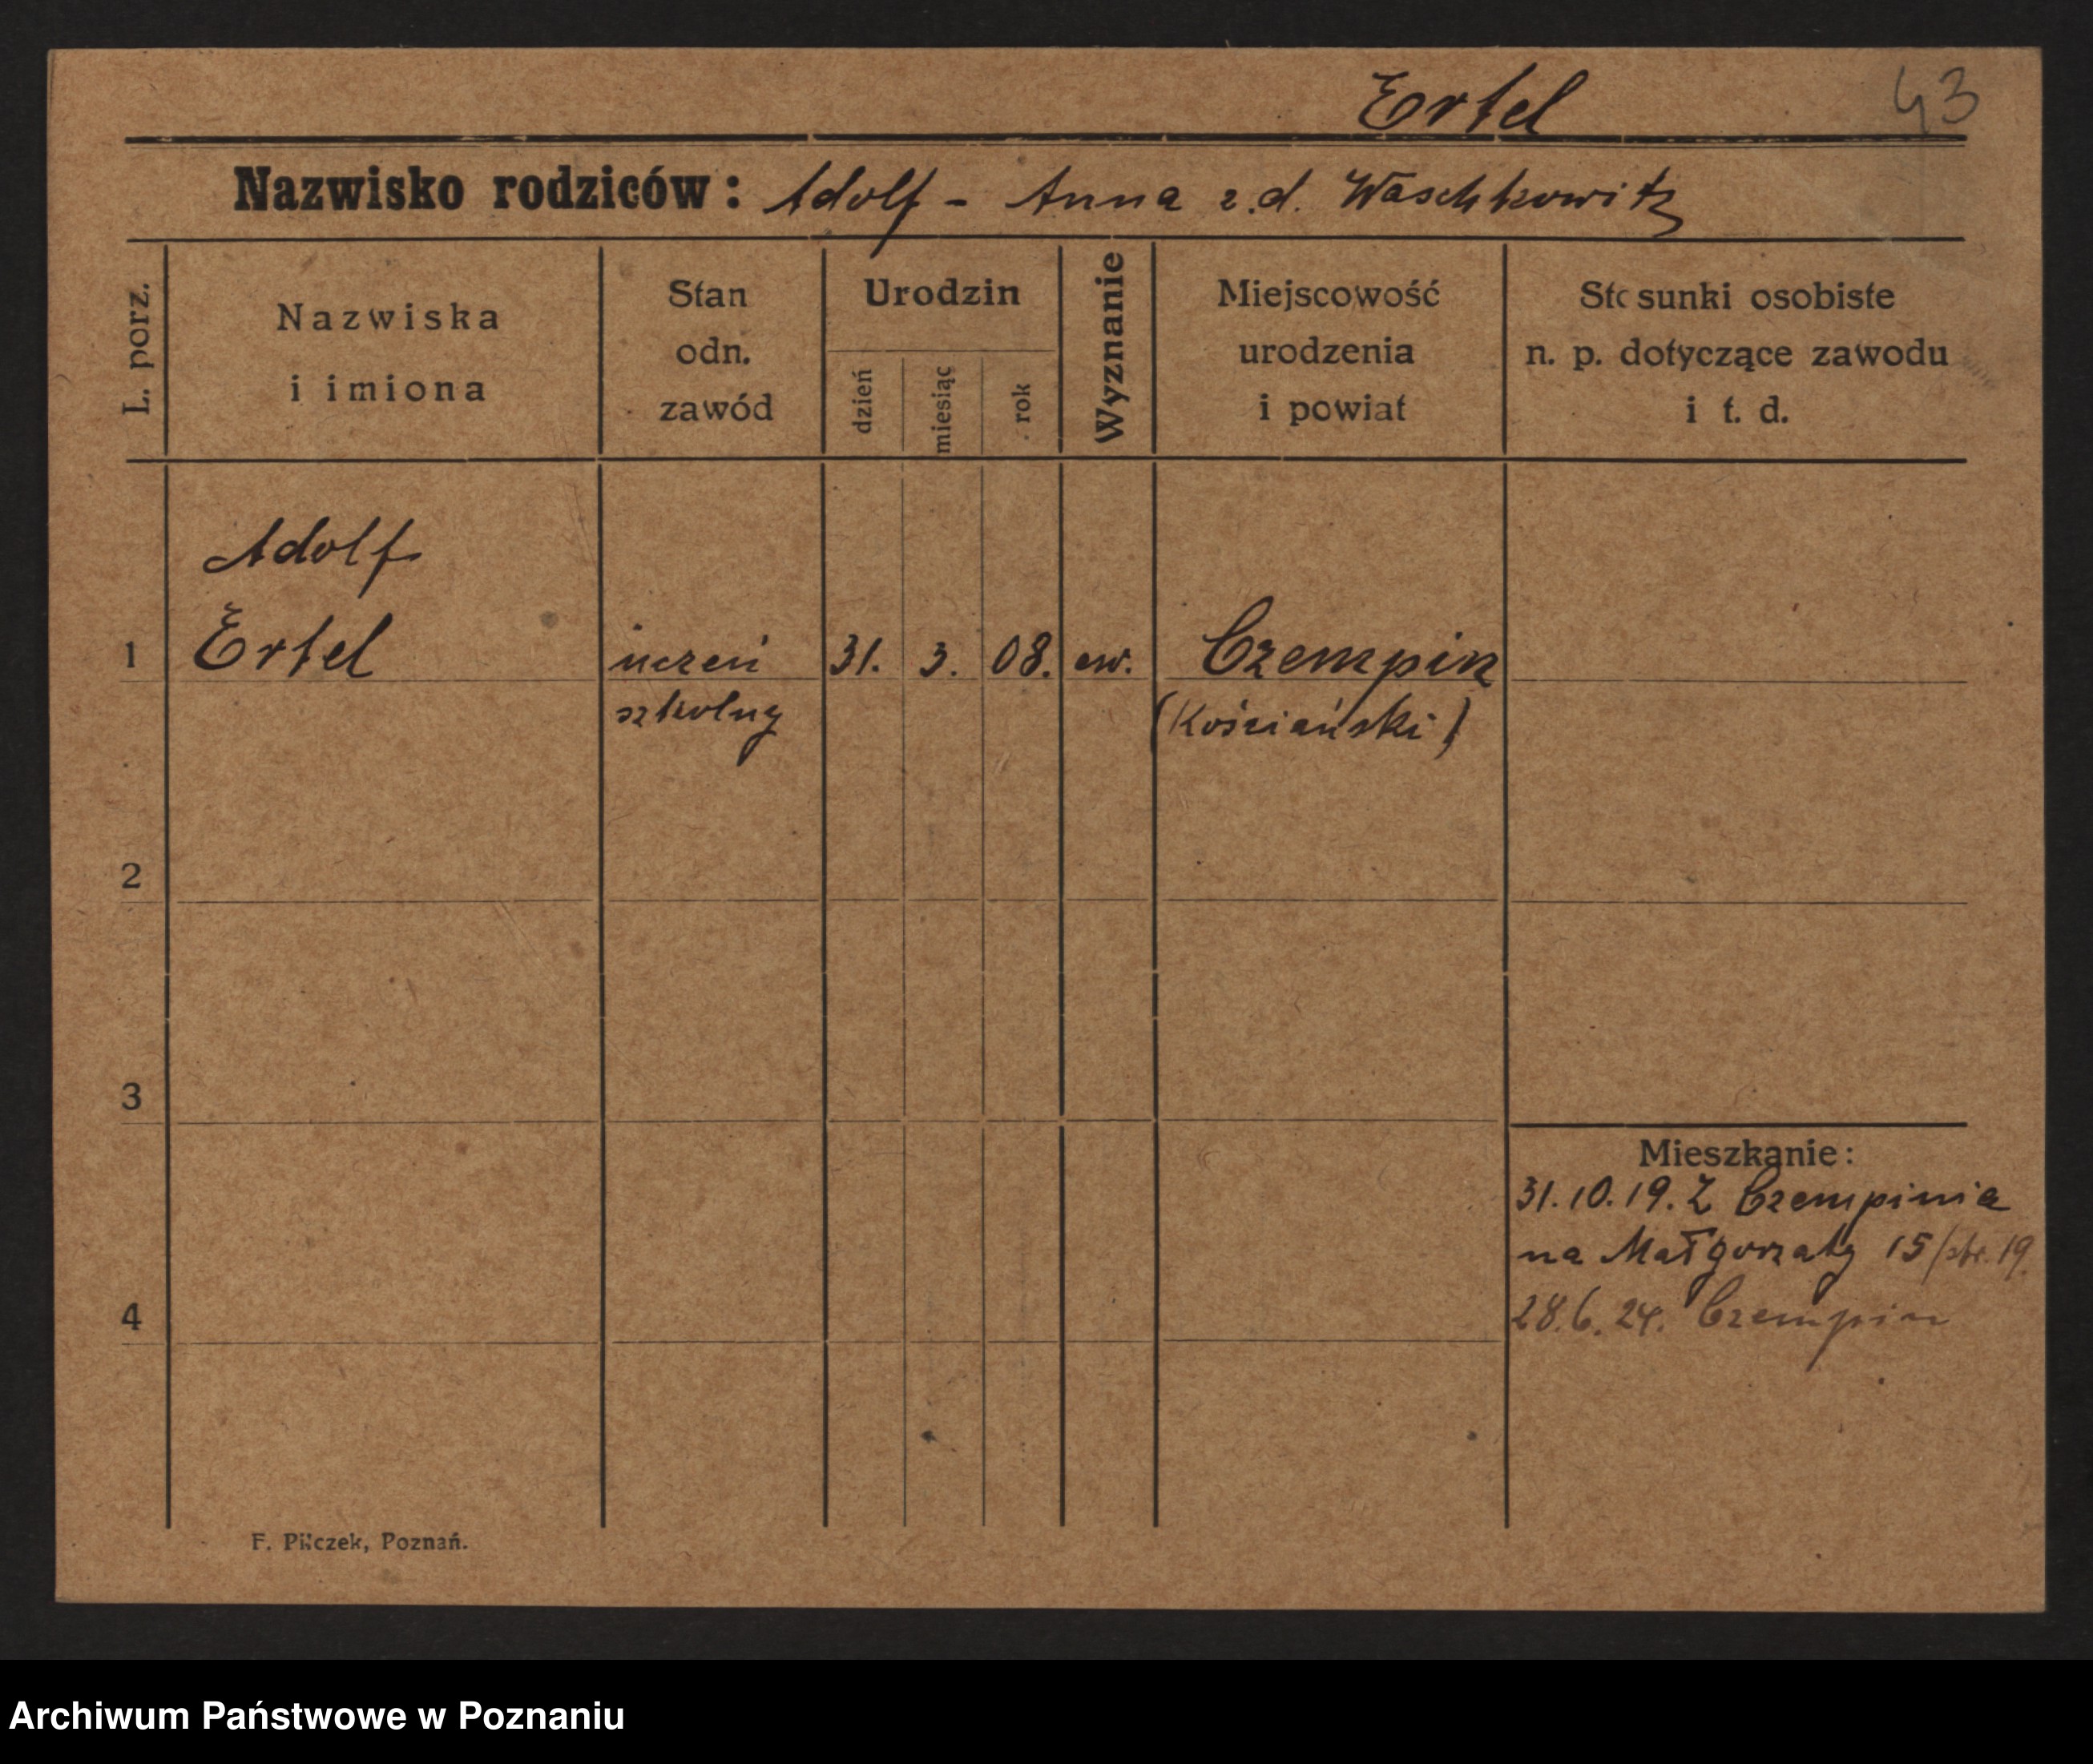 Ertel 43
Nazwisko rodziców: Adolf - Anna z.d. Waschkowitz
L. porz.
Nazwiska
i imiona
Stan
odn.
zawód
Urodzin
dzień
miesiąc
rok
Wyznanie
Miejscowość
urodzenia
i powiat
Stosunki osobiste
n. p. dotyczące zawodu
i t. d.
Adolf
1 Ertel uczeń 31. 3. 08. ew. Czempin
szkolny (Kościański)
2
3
Mieszkanie:
31.10.19. Z Czempinia
na Małgorzaty 15/ptr. 19.
4 28.6.24. Czempin
F. Pilczek, Poznań.
Archiwum Państwowe w Poznaniu